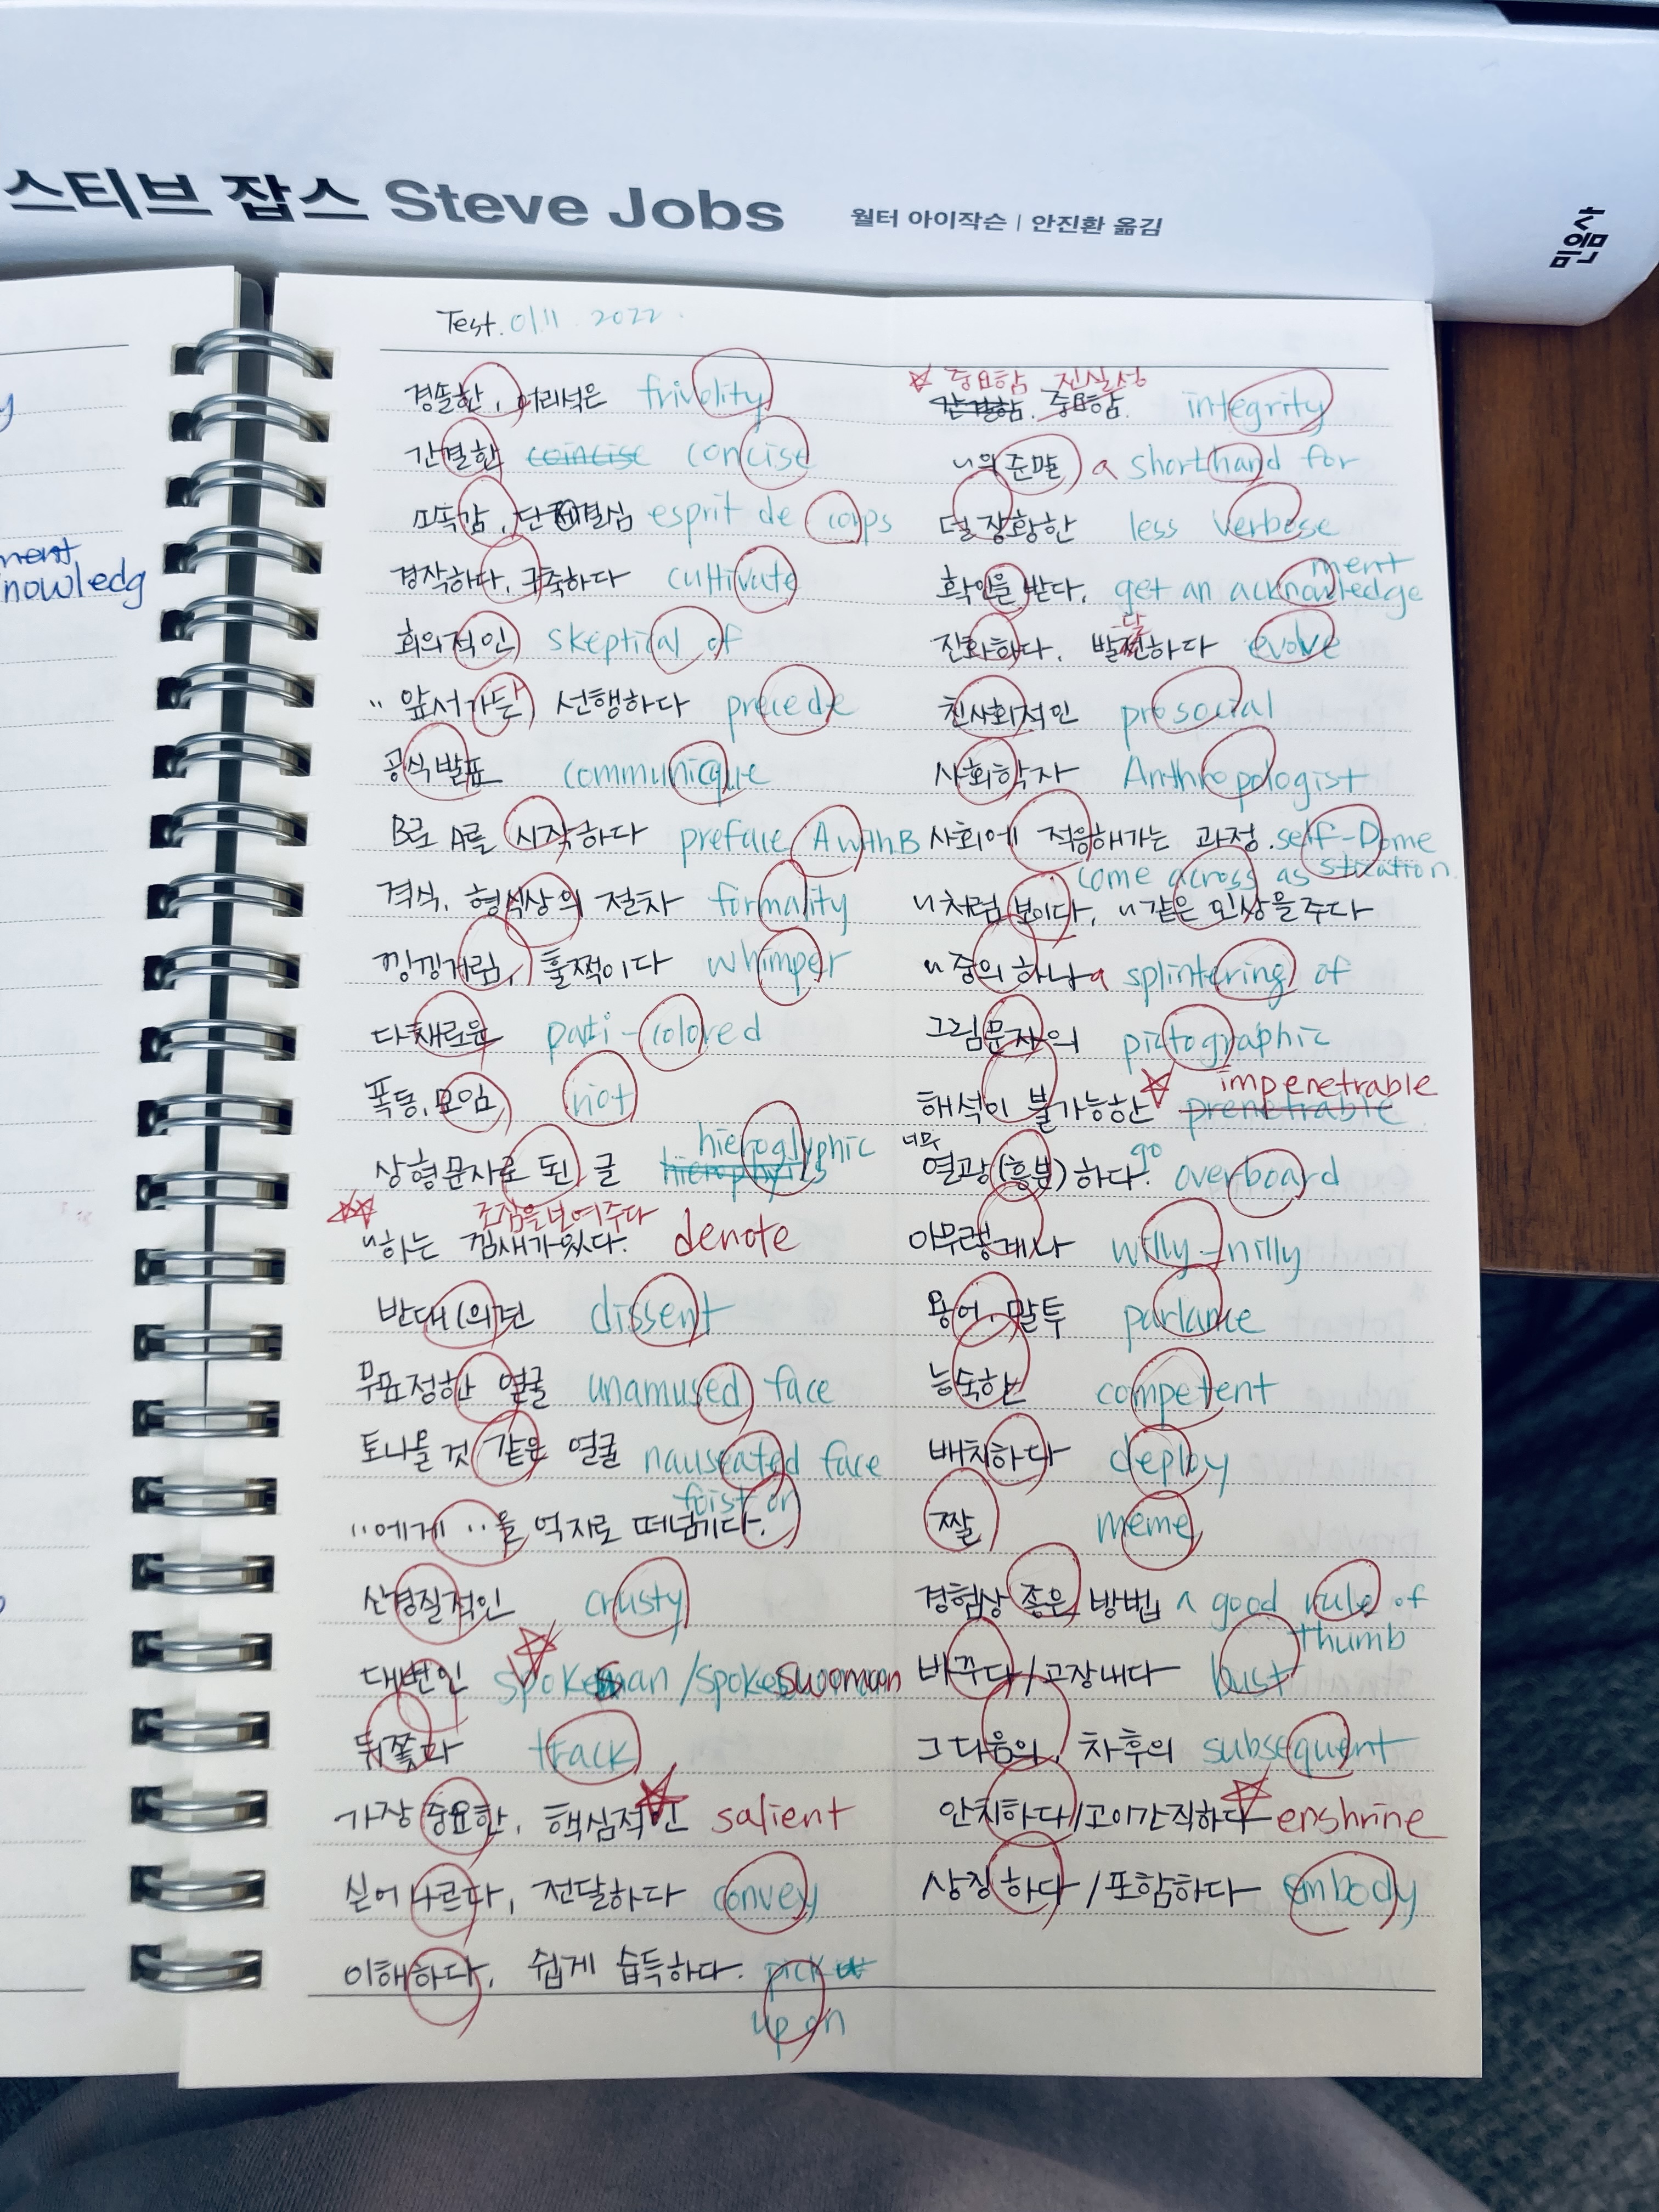 스티브 잡스 Steve Jobs 월터 아이작슨 | 안진환 옮김
민음사
y
ment
nowledg
Test. 01.11. 2022.
경솔한, 어리석은 frivolity
간결한 coincise concise
esprit de corps
경작하다, 구축하다 cultivate
회의적인 skeptical of
앞서가는 선행하다 precede
공식발표 communicque
B로 A를 시작하다 preface A with B
격식, 형식상의 절차 formality
낑낑거림, 훌쩍이다 whimper
다채로운 pati-colored
폭동, 모임 riot
hieroglyphic
상형문자로 된 글
조짐을 보여주다
~하는 낌새가 있다. denote
반대(의)견 dissent
무표정한 얼굴 unamused face
토나올 것 같은 얼굴 nauseated face
foist on
~에게 ~을 억지로 떠넘기다.
신경질적인 crusty
대변인 spokesman / spokeswoman
뒤쫓다 track
가장 중요한, 핵심적인 salient
실어나르다, 전달하다 convey
이해하다, 쉽게 습득하다. pick
up on
중요함 진실성
중요함. integrity
~의 준말 a shorthand for
덜 장황한 less verbose
ment
확인을 받다. get an acknowledge
달
진화하다, 발전하다 evolve
친사회적인 prosocial
사회학자 Anthropologist
사회에 적응해가는 과정. self-Dome
stication.
come across as
~처럼 보이다, ~같은 인상을 주다
~중의 하나 a splintering of
그림문자의 pictographic
impenetrable
해석이 불가능한 prenetrable
너무
go
열광(흥분)하다. overboard
아무렇게나 willy-nilly
용어, 말투 parlance
능숙한 competent
배치하다 deploy
짤 meme
경험상 좋은 방법 a good rule of
thumb
바꾸다/고장내다 bust
그 다음의, 차후의 subsequent
안치하다/고이간직하다 enshrine
상징하다/포함하다 embody